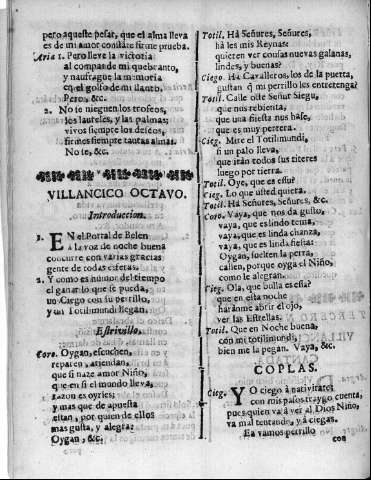 pero aqueste pesar, que el alma lleva
es de mi amor constãte firme prueba.
Aria 1. Pero lleve la victoria
al compas de mi quebranto,
y naufrague la memoria
en el golfo de mi llanto.
Pero, &c.
2. No te nieguen los trofeos,
los laureles, y las palmas;
vivos siempre los deseos,
firmes siempre tantas almas.
No te, &c.
VILLANCICO OCTAVO.
Introduccion.
1. EN el Portal de Belen
a la voz de noche buena
concurre con varias gracias
gente de todas esferas.
2. Y como es numen del tiempo
el ganarlo que se pueda,
un Ciego con su perrillo,
y un Totilimundi llegan.
Estrivillo.
Coro. Oygan, escuchen,
reparen, atiendan,
que si naze amor Niño,
que en si el mundo lleva,
razon es oyrles;
y mas que de apuesta
estan, por quien de ellos
mas gusta, y alegra:
Oygan, &c.
Totil. Há Señures, Señures,
há les mis Reynas:
quieren ver cousas nuevas galanas,
lindes, y buenas?
Ciego. Há Cavalleros, los de la puerta,
gustan q̃ mi perrillo les entretenga?
Totil. Calle oste Señur Siegu,
que mos rebienta,
que una fiesta nus hase,
que es muy perrera.
Cieg. Mire el Totilimundi,
si un palo lleva,
que irán todos sus titeres
luego por tierra.
Totil. Oye, que es esu?
Cieg. Lo que usted quiera.
Totil. Há Señures, Señures, &c.
Coro. Vaya, que nos da gusto,
vaya, que es lindo tema,
vaya, que es linda chanza,
vaya, que es linda fiesta:
Oygan, suelten la perra,
callen, porque oyga el Niño,
como le alegran.
Cieg. Ola, que bulla es esta?
que en esta noche
harànme abrir el ojo,
ver las Estrellas.
Totil. Que en Noche buena,
con mi totilimundi,
bien me la pegan. Vaya, &c.
COPLAS.
Cieg. YO ciego à nativitate
con mis passos traygo cuenta,
pues quien va à ver al Dios Niño,
va mal tentando, y à ciegas.
Ea vamos perrillo
con